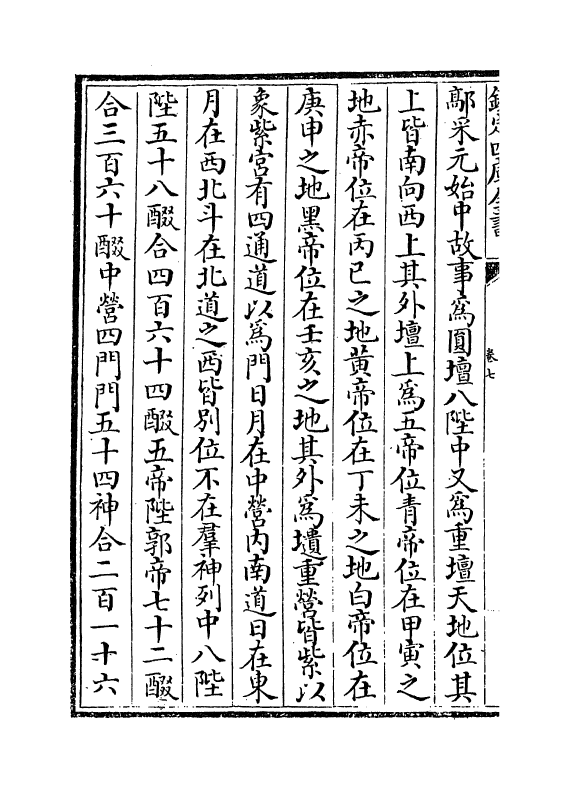 欽定四庫全書
卷七
鄗采元始中故事為圓壇八陛中又為重壇天地位其
上皆南向西上其外壇上為五帝位青帝位在甲寅之
地赤帝位在丙巳之地黃帝位在丁未之地白帝位在
庚申之地黑帝位在壬亥之地其外為壝重營皆紫以
象紫宮有四通道以為門日月在中營內南道日在東
月在西北斗在北道之西皆別位不在羣神列中八陛
陛五十八醊合四百六十四醊五帝陛郭帝七十二醊
合三百六十醊中營四門門五十四神合二百一十六